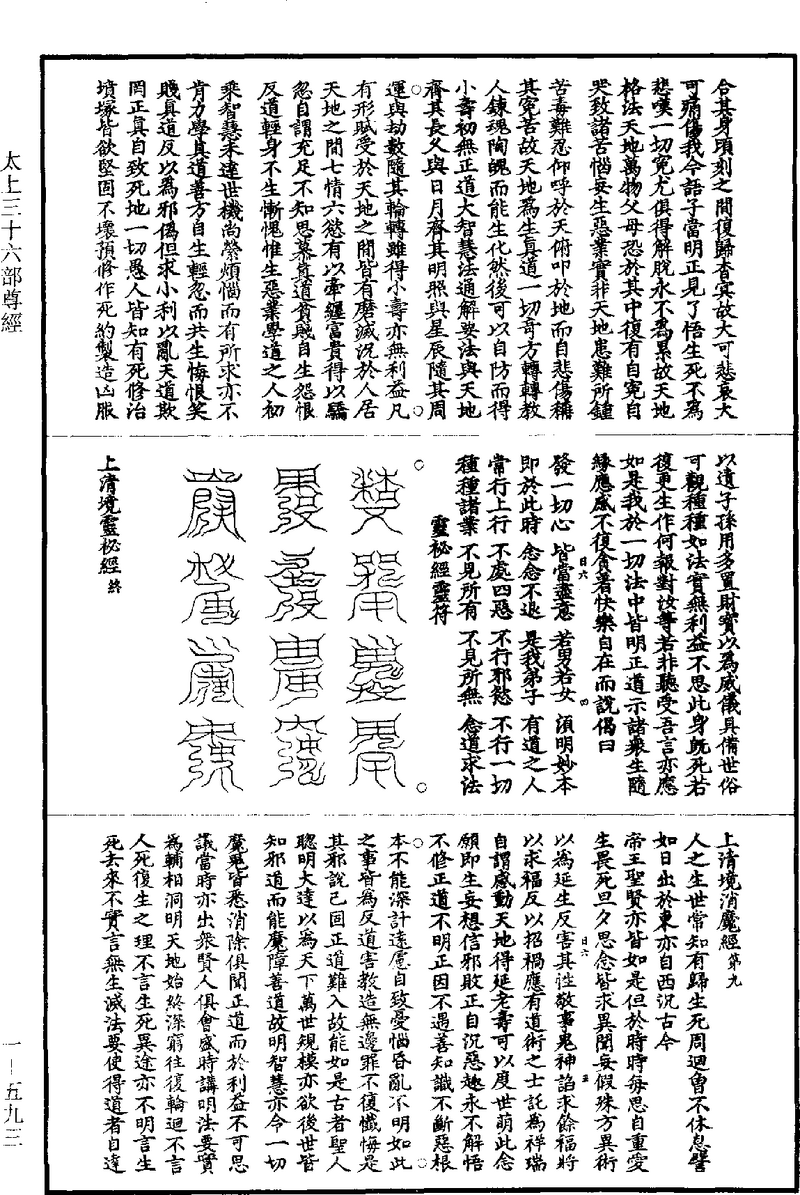 太上三十六部尊經
一—五九三
合其身頃刻之間復歸杳冥故大可悲哀大
可痛傷我今語子當明正見了悟生死不為
悲嘆一切冤尤俱得解脫永不為累故天地
格法天地萬物父母恐於其中復有自冤自
哭致諸苦惱每生惡業實非天地患難所鍾
苦毒難忍仰呼於天俯叩於地而自悲傷稱
其冤苦故天地為生真道一切奇方轉轉教
人鍊魂陶魄而能生化然後可以自防而得
小壽初無正道大智慧法通解要法與天地
齊其長久與日月齊其明照與星辰隨其周
運與劫數隨其輪轉雖得小壽亦無利益凡
有形賦受於天地之間皆有磨滅況於人居
天地之間七情六慾有以牽纏富貴得以驕
忽自謂充足不知思慕真道貧賤自生怨恨
反道輕身不生慚愧惟生惡業學道之人初
乘智慧未達世機尚縈煩惱而有所求亦不
肯力學真道善方自生輕忽而共生悔恨笑
賤真道反以為邪偽但求小利以亂天道欺
罔正真自致死地一切愚人皆知有死修治
墳塚皆欲堅固不壞預修作死約製造凶服
以遺子孫用多置財寶以為威儀具備世俗
可觀種種如法實無利益不思此身既死若
復更生作何報對汝等若非聽受吾言亦應
如是我於一切法中皆明正道示諸眾生隨
緣應感不復貪著快樂自在而說偈曰
發一切心 皆當盡意 若男若女 須明妙本
即於此時 念念不退 是我弟子 有道之人
常行上行 不處四惡 不行邪慾 不行一切
種種諸業 不見所有 不見所無 念道求法
靈祕經靈符
上清境靈祕經終
上清境消魔經第九
人之生世常知有歸生死周迴曾不休息譬
如日出於東亦自西沉古今
帝王聖賢亦皆如是但於時時每思自重愛
生畏死旦夕思念皆求異聞每假殊方異術
以為延生反害其性敬事鬼神諂求餘福將
以求福反以招禍應有道術之士託為祥瑞
自謂感動天地得延老壽可以度世萌此念
願即生妄想信邪敗正自沉惡趣永不解悟
不修正道不明正因不遇善知識不斷惡根
本不能深計遠慮自致憂惱昏亂不明如此
之事皆為反道害教造無邊罪不復懺悔是
其邪說已固正道難入故能如是古者聖人
聰明大達以為天下萬世規模亦欲後世皆
知邪道而能魔障善道故明智慧亦令一切
魔鬼皆悉消除俱聞正道而於利益不可思
議當時亦出眾賢人俱會感時講明法要實
為輔相洞明天地始終深窮往復輪迴不言
人死復生之理不言生死異途亦不明言生
死去來不實言無生滅法要使得道者自達